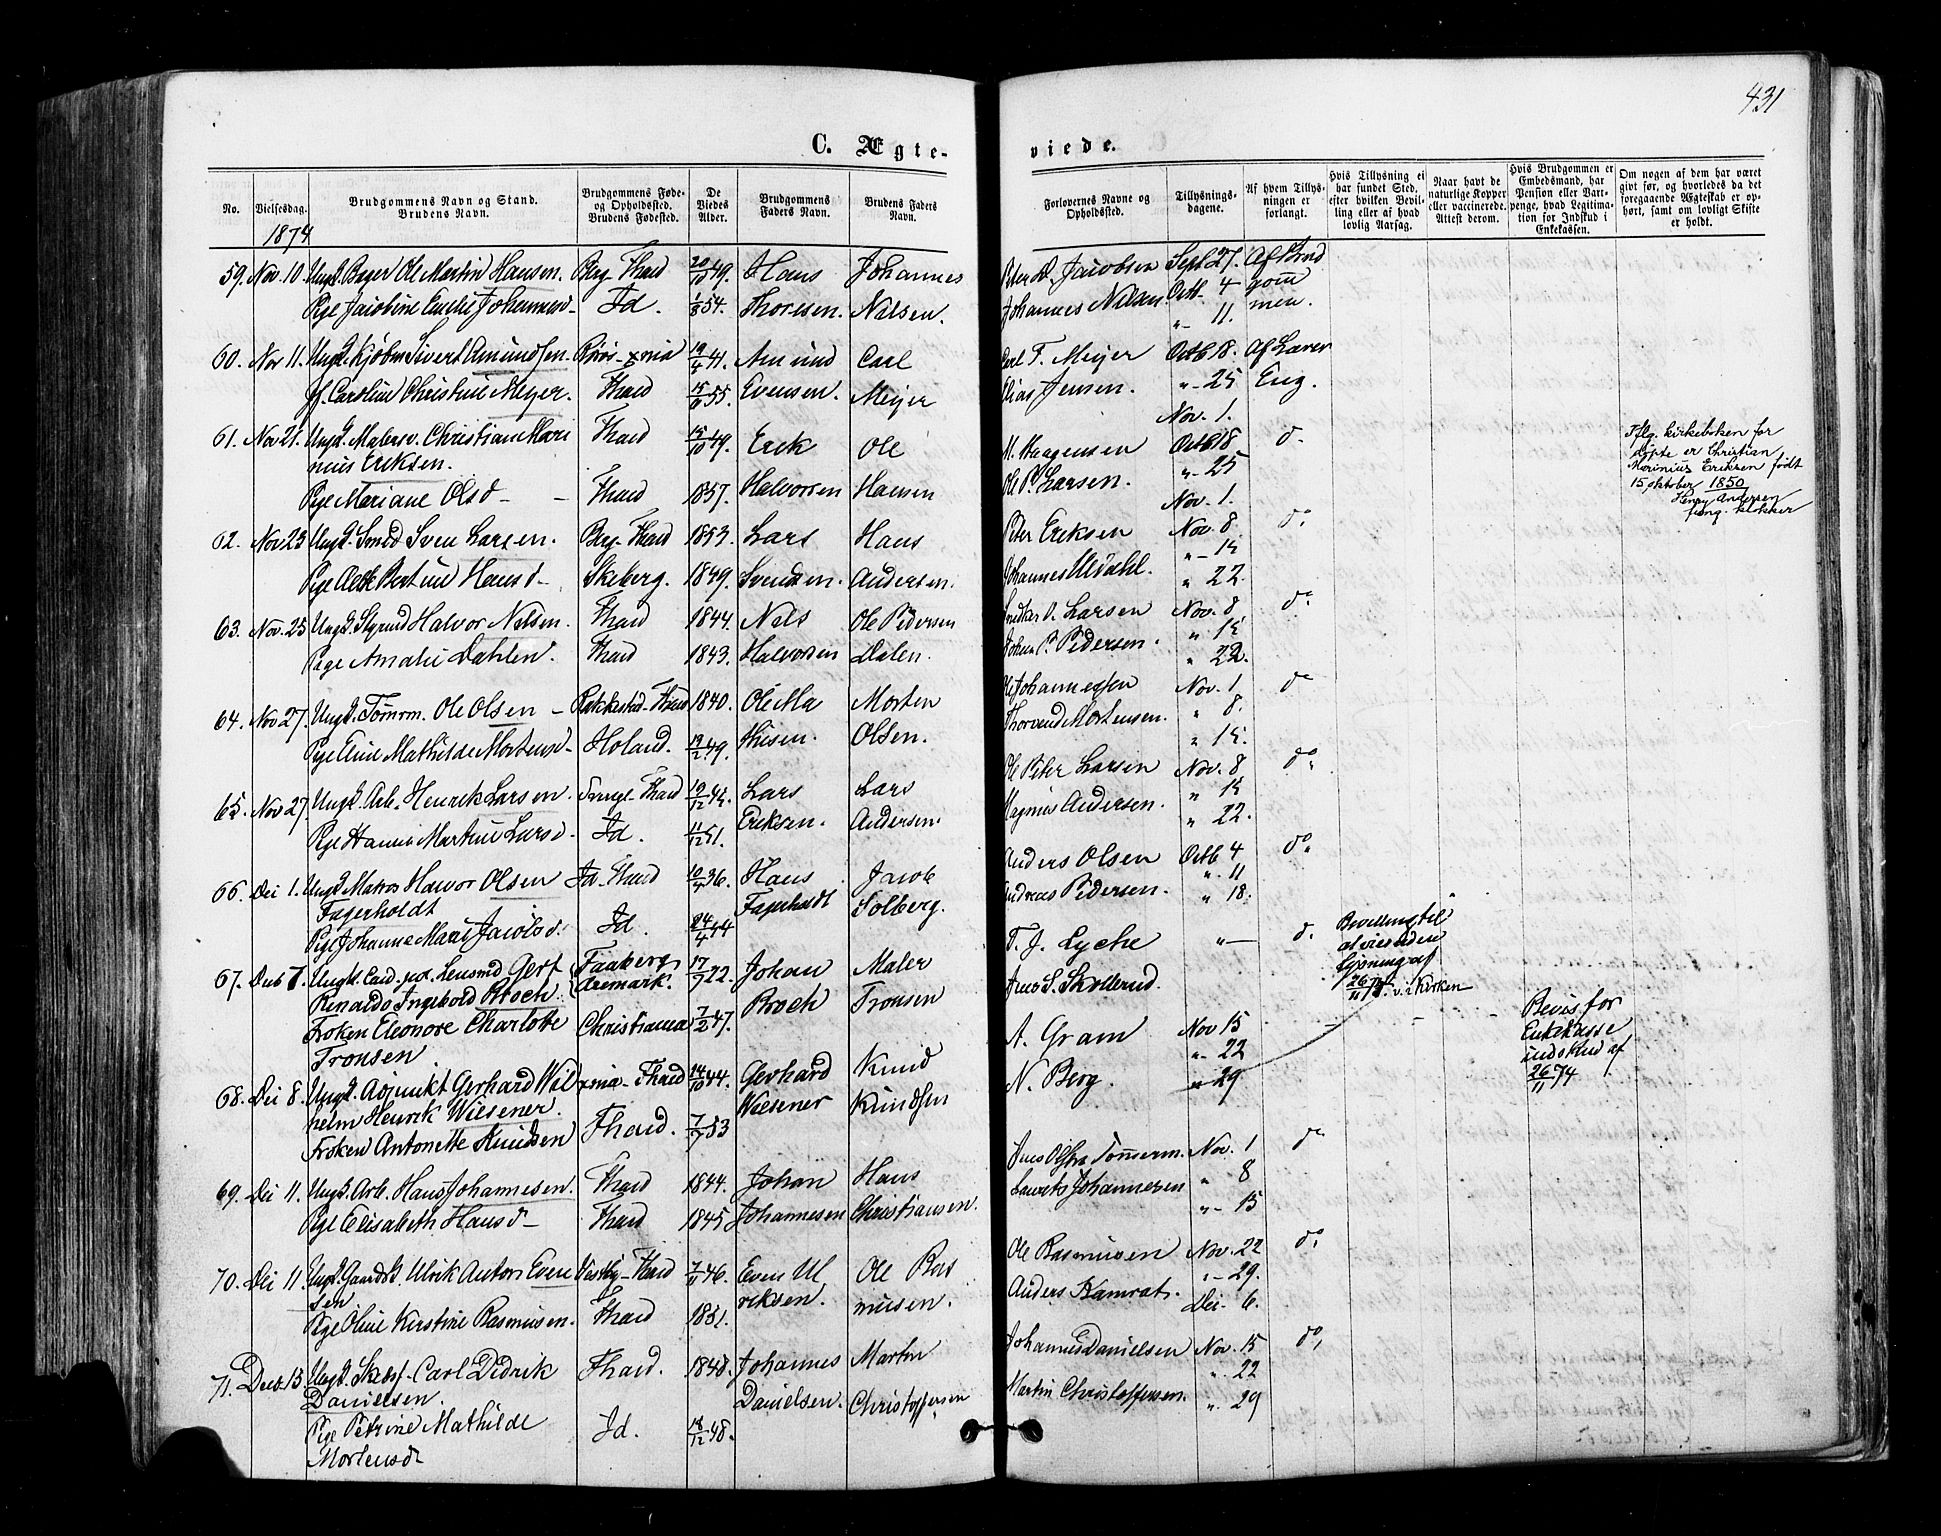 431
C. Ægte-
viede.
No.
Vielsesdag.
Brudgommens Navn og Stand.
Brudens Navn.
Brudgommens Føde-
og Opholdssted.
Brudens Fødested.
De
Viedes
Alder.
Brudgommens
Faders Navn.
Brudens Faders
Navn.
Forlovernes Navne og
Opholdssted.
Tillysnings-
dagene.
Af hvem Tillys-
ningen er
forlangt.
Hvis Tillysning ei
har fundet Sted,
efter hvilken Bevil-
ling eller af hvad
lovlig Aarsag.
Naar havt de
naturlige Kopper
eller vaccinerede.
Attest derom.
Hvis Brudgommen er
Embedsmand, har
Pension eller Vart-
penge, hvad Legitima-
tion for Indskud i
Enkekassen.
Om nogen af dem har været
givt før, og hvorledes da det
foregaaende Ægteskab er op-
hørt, samt om lovligt Skifte
er holdt.
1874
59. Nov. 10. Ungk. Ole Martin Hansen. Fhald 20/10 49. Hans Johannes
Pige Jacobine Emilie Johannesd- Id. 1/8 54. Thoresen. Nilsen.
Jacobsen Sept 27. Af Brud
Johannes Nilsen. Octb. 4 gom
"- 11. men.
60. Nov 11. Ungk. Kjøbm Sivert Amundsen. 19/4 41. Amund Carl
Caroline Christine Meyer. Fhald 15/6 55. Evensen. Meyer
Carl F. Meyer Octb 18. Af Laver
Elias Jensen. "- 25 Eng.
Nov. 1.
61. Nov 21. Ungk. Malersv. Christian Mari Fhald 15/10 49. Erik Ole
nius Eriksen.
Pige Mariane Olsd - - Fhald 1857. Halvorsen Hansen
M. Haagensen Octb 18 do
Ole P. Larsen. "- 25
Nov. 1.
Iflg. kirkeboken for
døpte er Christian
Marinius Eriksen født
15 oktober 1850
Henry Andersen
fung. klokker
62. Nov 23 Ungk. Smed Sven Larsen. Berg- Fhald 1853. Lars Hans
Pige Bertine Hansd- Skeberg. 1849. Svendsen. Andersen.
Peter Eriksen Nov. 8 do
Johannes Ulvdahl. "- 15
" 22.
63. Nov. 25 Ungk. Halvor Nilsen. Fhald 1844. Nels Ole Pedersen
Pige Amalie Dahlen. Fhald 1843. Halvorsen Dalen.
O. Larsen Nov. 8 do
Johan P. Pedersen. " 15
" 22.
64. Nov 27. Ungk. Tømrm. Ole Olsen - Rakkestad-Fhald 1840. Ole Ma Morten
Pige Eline Mathilde Mortensd- Høland. 19/2 49. thisen. Olsen.
Ole Johannessen Nov. 1 do
Thorvend Mortensen. " 8.
" 15.
65. Nov 27. Ungk. Arb. Henrik Larsen. Fhald 19/12 45. Lars Lars
Pige Hanne Martine Larsd. Id. 11/12 51. Eriksen. Andersen.
Ole Peter Larsen Nov. 8 do
Magnus Andersen. " 15
" 22.
66. Dec 1. Ungk. Matros Halvor Olsen Id-Fhald 10/4 36. Hans Jacob
Fagerholdt Fagerholdt Solberg.
Pige Johanne Marie Jacobsd. Id. 24/4 44
Anders Olsen Octb 4 do
Andreas Pedersen. "- 11
" 18.
67. Decb 7. Ungk. Cand. jur. Gert Faaberg 17/7 22. Johan Maler
Renaldo Ingebold Broch. Aremark. Broch Tronsen
Frøken Eleonore Charlotte Christiania 7/2 47.
Tronsen
T. J. Lyche "- do
Jens S. Skollerud.
Bevilling til
at vies uden
lysning af
26/11 74. v. i Kirken
68. Dec 8. Ungk. Adjunkt Gerhard Wil xnia- Fhald 14/10 44. Gerhard Knud
helm Henrik Wiesener. Wiesener Knudsen
Frøken Antonette Knudsen Fhald. 7/7 53
A. Gram Nov 15
N. Berg. "- 22
" 29
Bevis for
Enkekasse
indskud af
26/11 74
69. Dec 11. Ungk. Arb. Hans Johannesen. Fhald 1844. Johan Hans
Pige Elisabeth Hansd- Fhald 1845 Johannesen Christiansen.
Jens Tømrerm. Nov. 1 do
Laurits Johannesen " 8
"- 15
70. Dec 11. Ungk. Gaardsk. Ulrik Anton Even Vestby-Fhald 7/11 46. Even Ul Ole Ras
sen
Pige Oline Kirstine Rasmussen. Fhald 1851. riksen. musen.
Ole Rasmusen Nov. 22 do
Anders Kamrat. "- 29.
Dec. 6.
71. Decb. 13 Ungk. Carl Didrik Fhald. 1848. Johannes Martin
Danielsen. Danielsen. Christoffersen
Pige Petrine Mathilde Id. 18/12 48.
Mortensd
Johannes Danielsen Nov. 15 do
Martin Christoffersen. ". 22
". 29